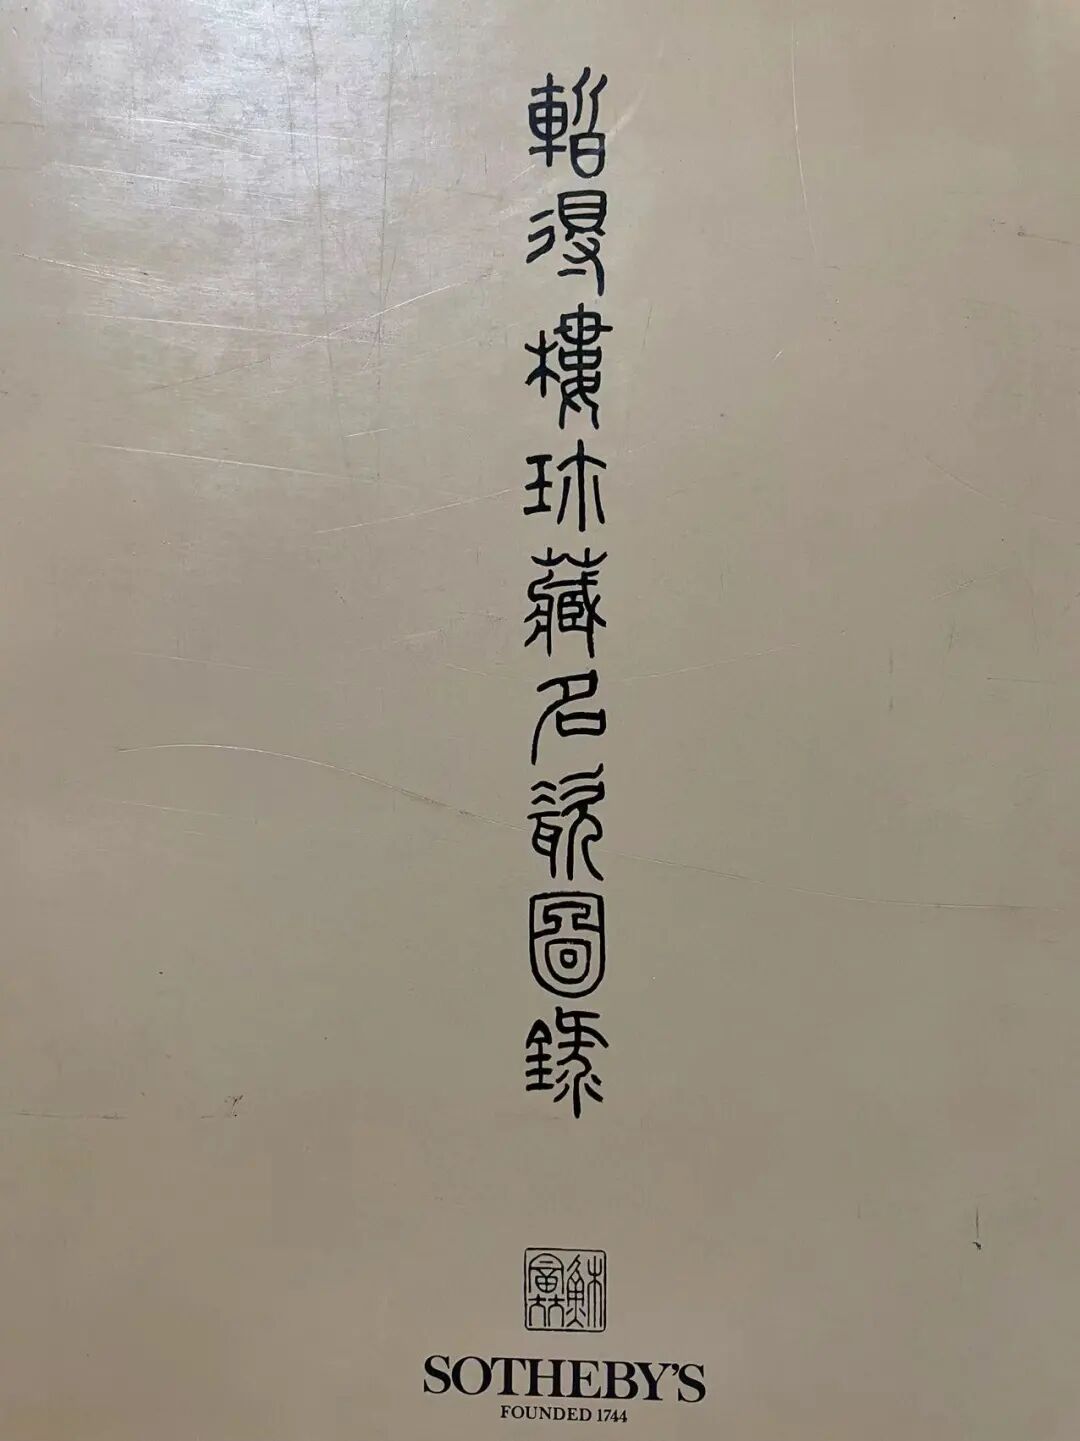 暫得樓珍藏名瓷圖錄
穌富比
SOTHEBY'S
FOUNDED 1744